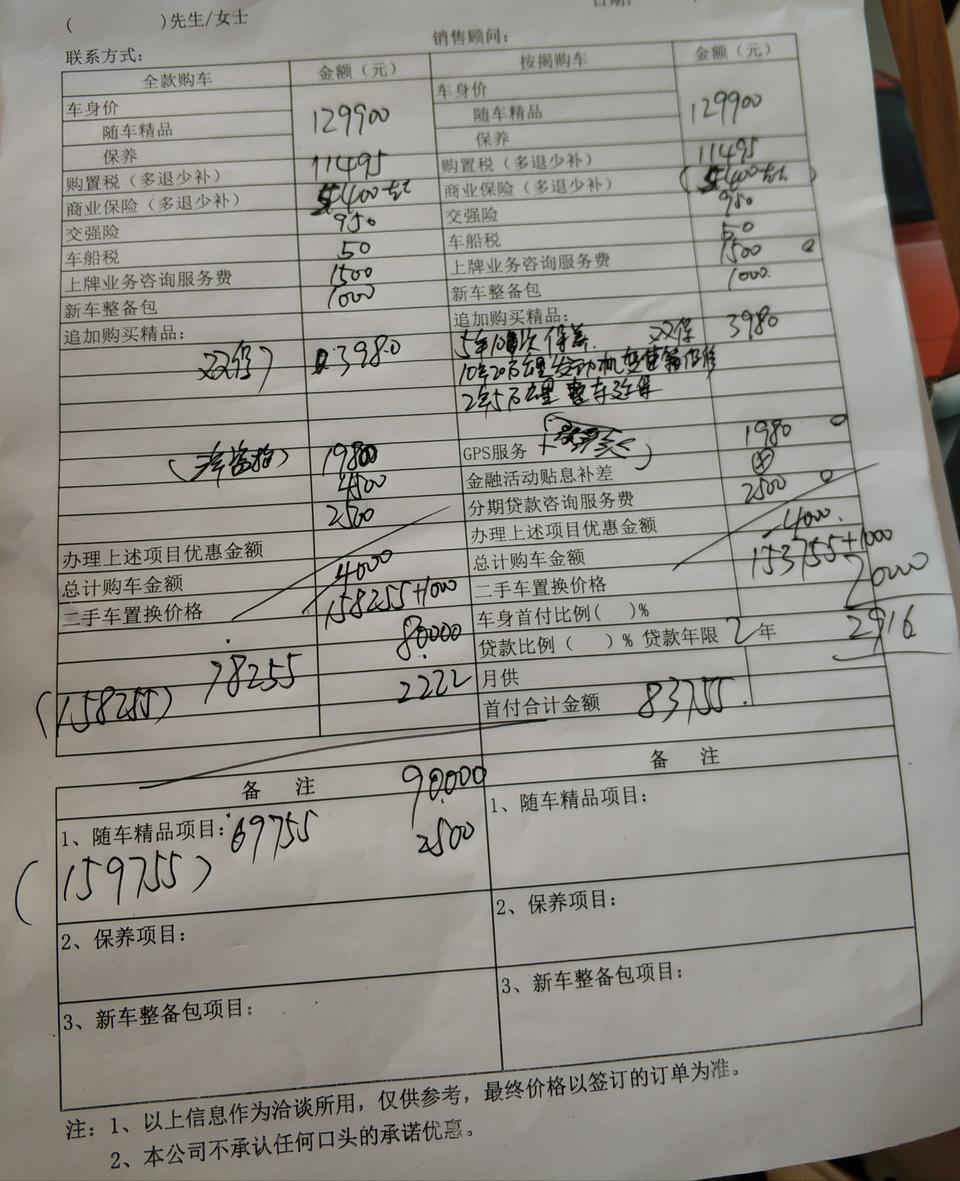 ( )先生/女士
联系方式: 销售顾问:
全款购车 金额（元） 按揭购车 金额（元）
车身价 129900 车身价 129900
随车精品 随车精品
保养 保养
购置税（多退少补） 11495 购置税（多退少补） 11495
商业保险（多退少补） 5400 商业保险（多退少补） (5400 )
交强险 950 交强险 950
车船税 50 车船税 50
上牌业务咨询服务费 1500 上牌业务咨询服务费 1500
新车整备包 1000 新车整备包 1000
追加购买精品: 追加购买精品:
双保) 3980 5年10次保养. 双保 3980
10年20万公里发动机变速箱保修
2年5万公里整车延保
1980 GPS服务 1980
4500 金融活动贴息补差
2500 分期贷款咨询服务费 2500
办理上述项目优惠金额 4000 办理上述项目优惠金额 -4000.
总计购车金额 158255+1000 总计购车金额 153755+1000
二手车置换价格 二手车置换价格 70000
80000 车身首付比例( )%
78255 贷款比例 ( )% 贷款年限 2 年 2916
(158255) 2222 月供
首付合计金额 83755.
备 注 90000 备 注
1、随车精品项目: 69755 2500 1、随车精品项目:
(159755)
2、保养项目: 2、保养项目:
3、新车整备包项目: 3、新车整备包项目:
注: 1、以上信息作为洽谈所用，仅供参考，最终价格以签订的订单为准。
2、本公司不承认任何口头的承诺优惠。